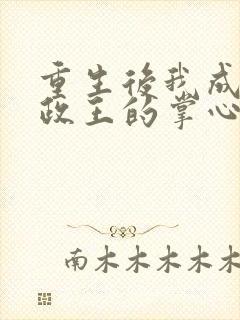 重生後我成
政王的掌心
南木木木木